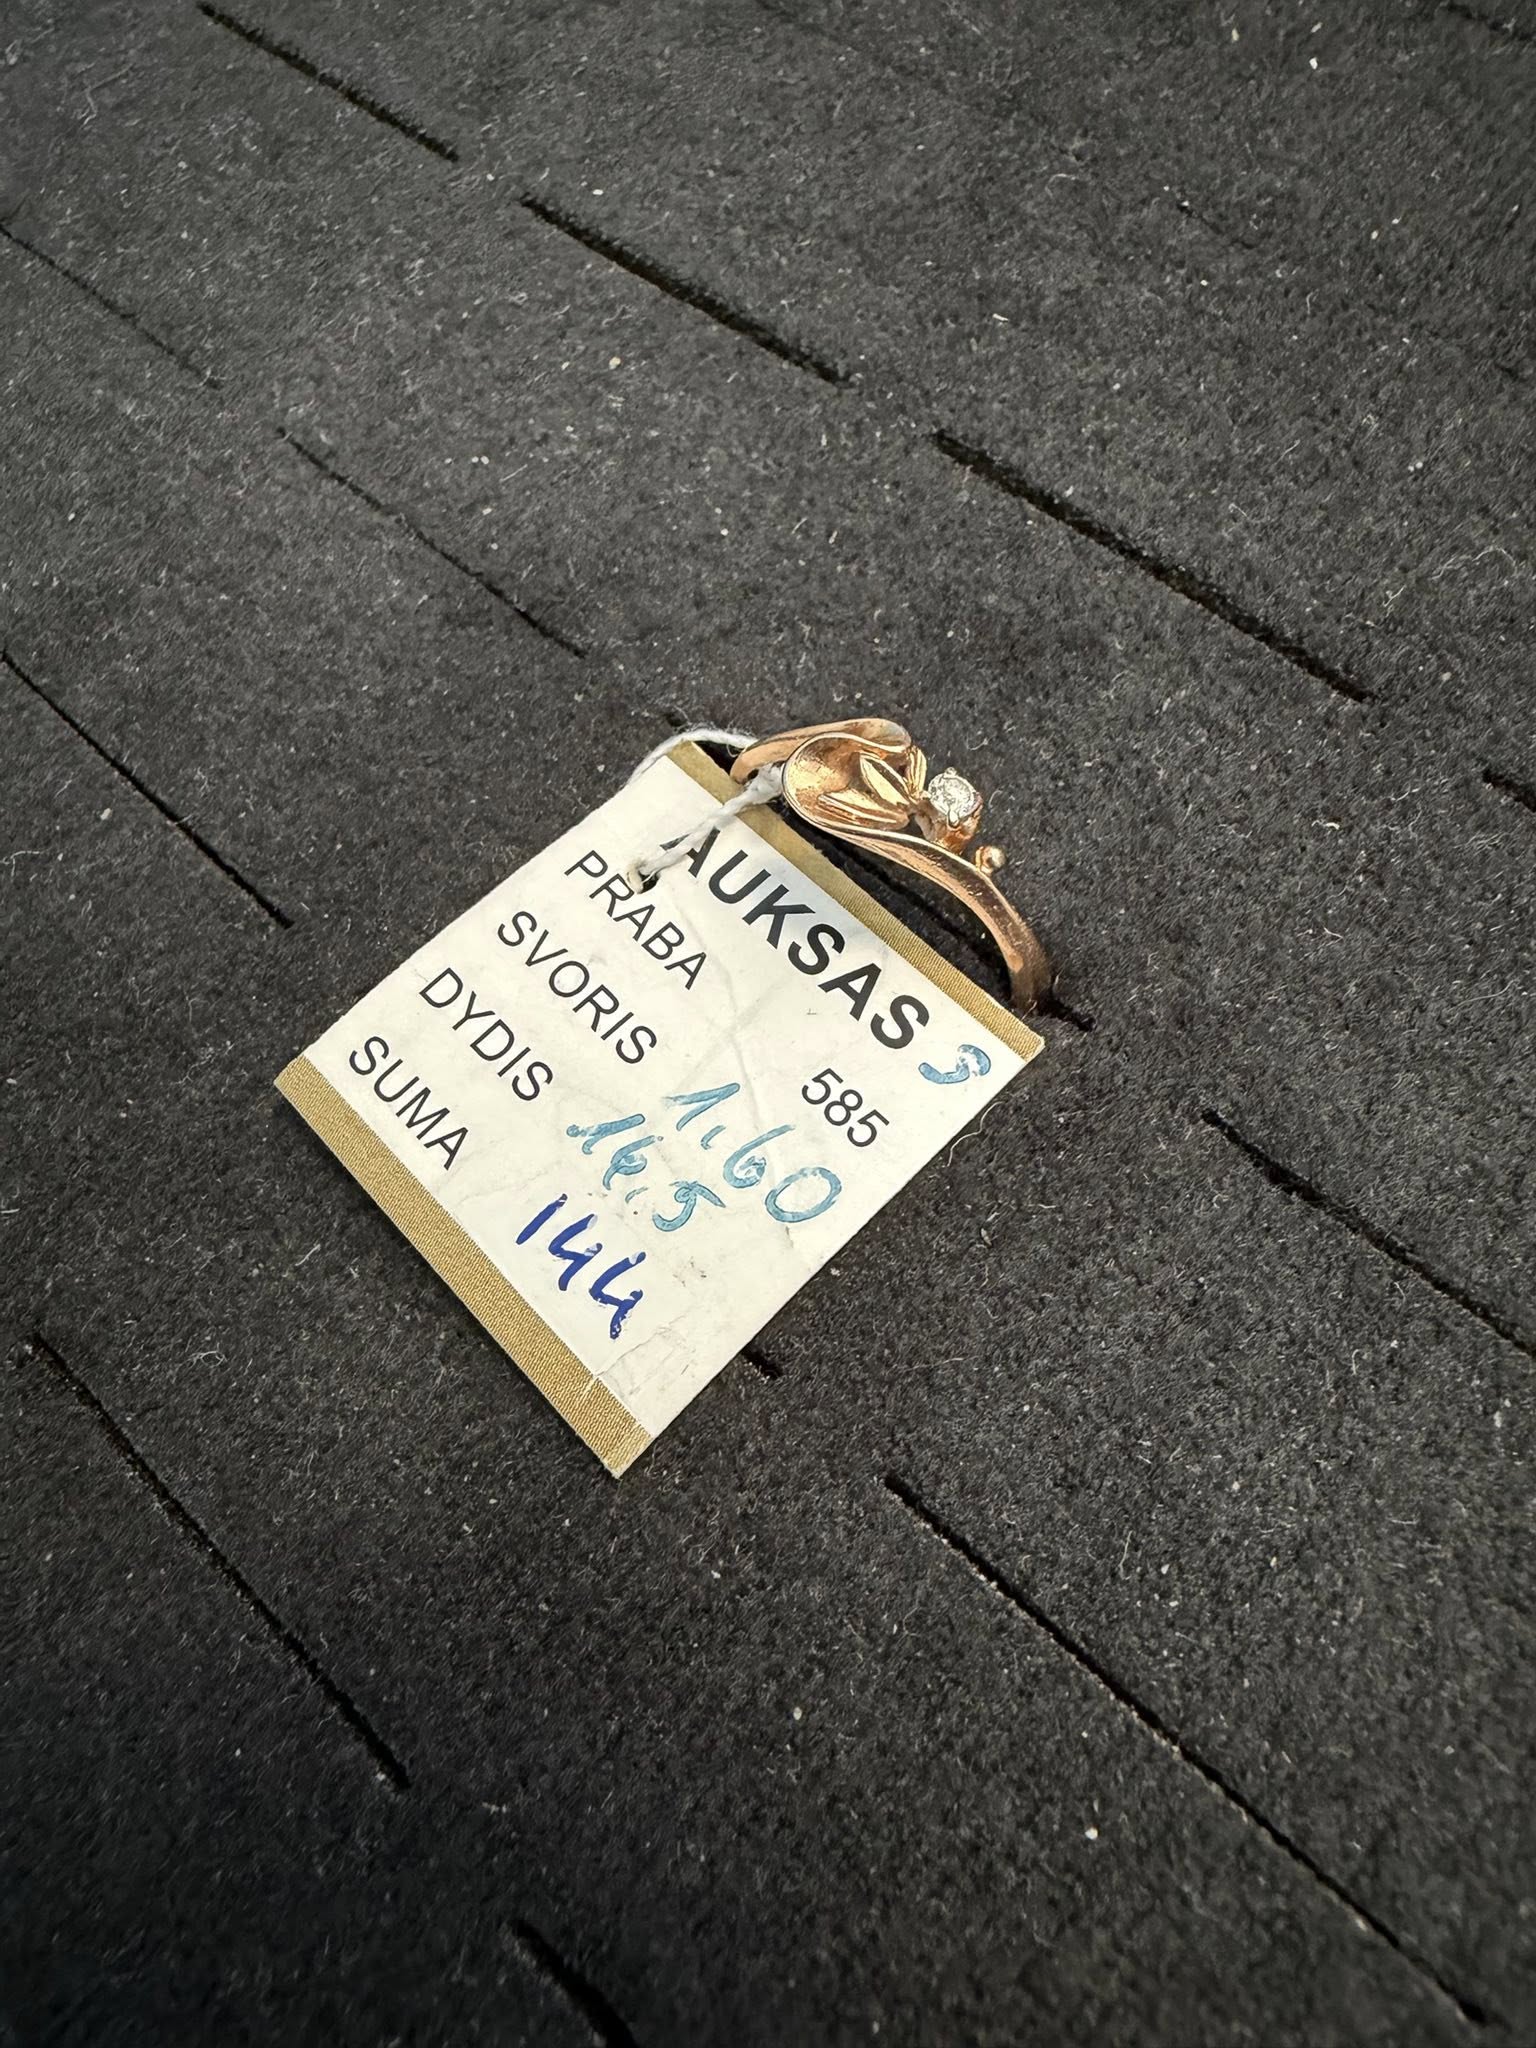 AUKSAS 3
PRABA 585
SVORIS 1.60
DYDIS 16.5
SUMA 144